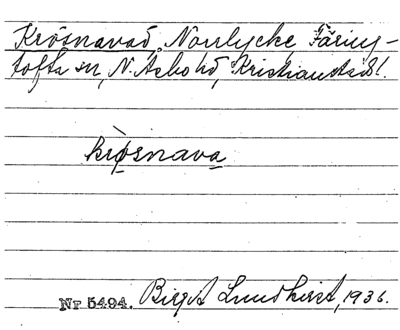 Krösnavad, Norrlycke, Färing-
tofta sn, N. Åsbo hd, Kristianstads l.
krò̤snava
Nr 5494. Birgit Lundkvist, 1936.